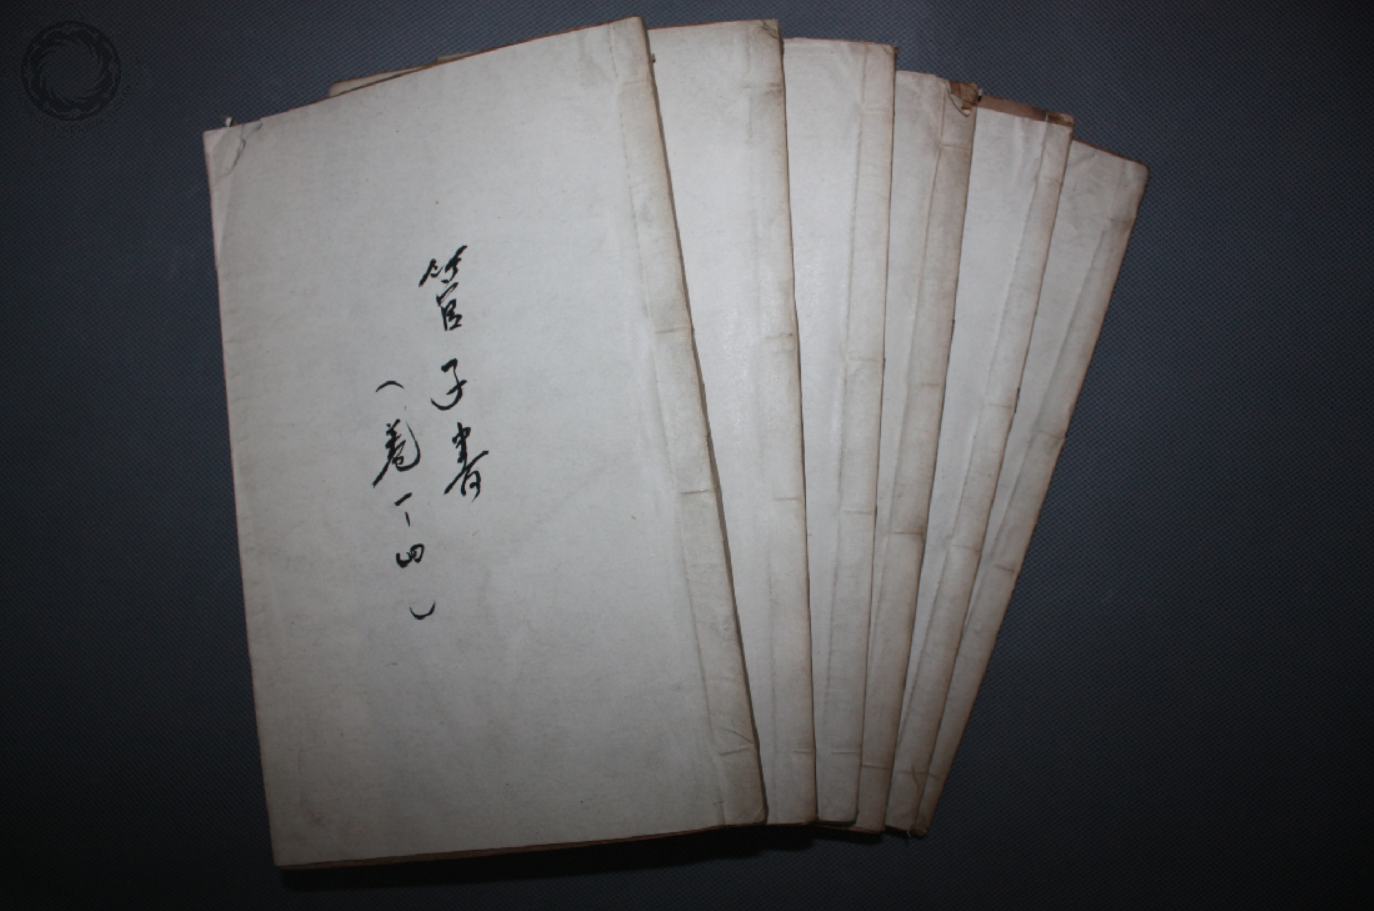 管子書
（卷一-四）